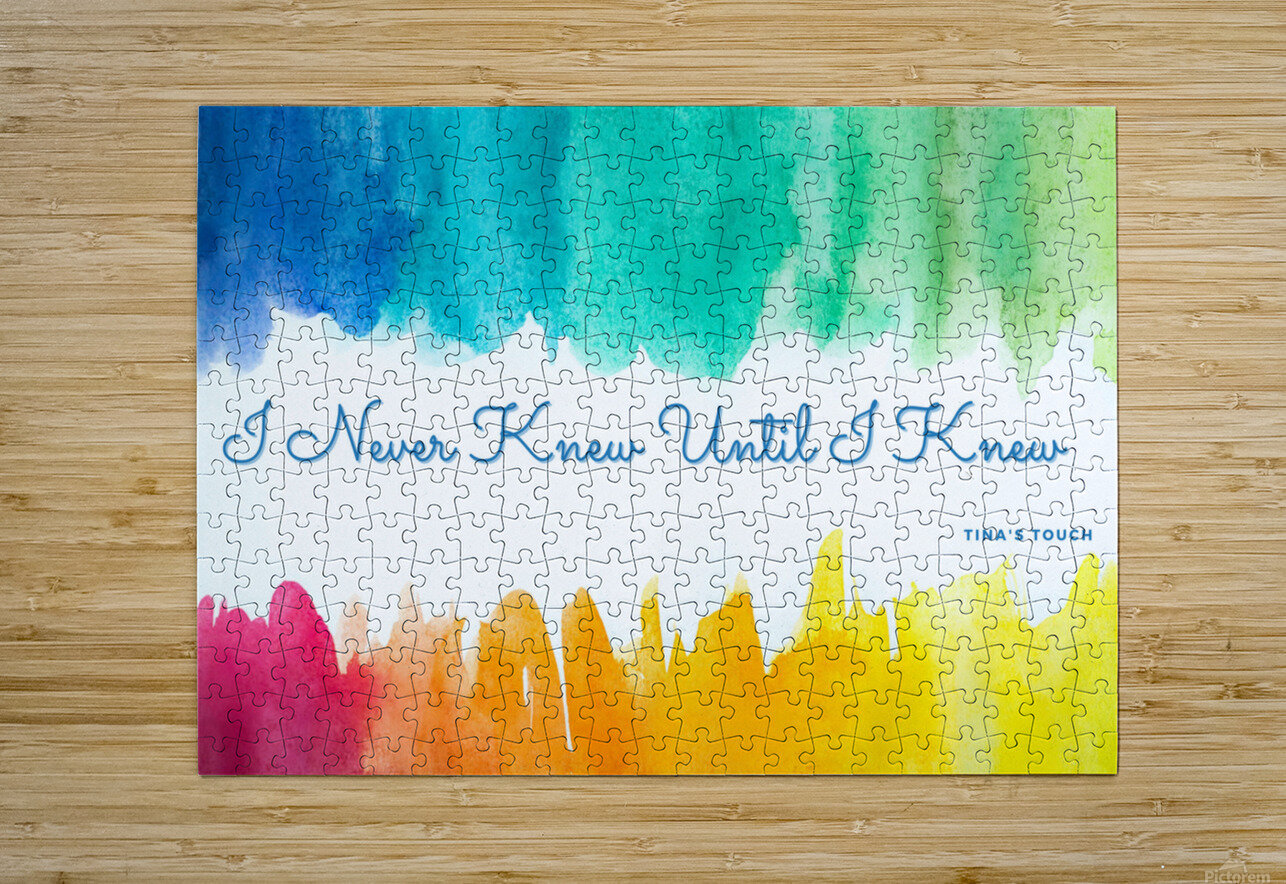 I Never Knew Until I Knew
TINA'S TOUCH
Pictorem